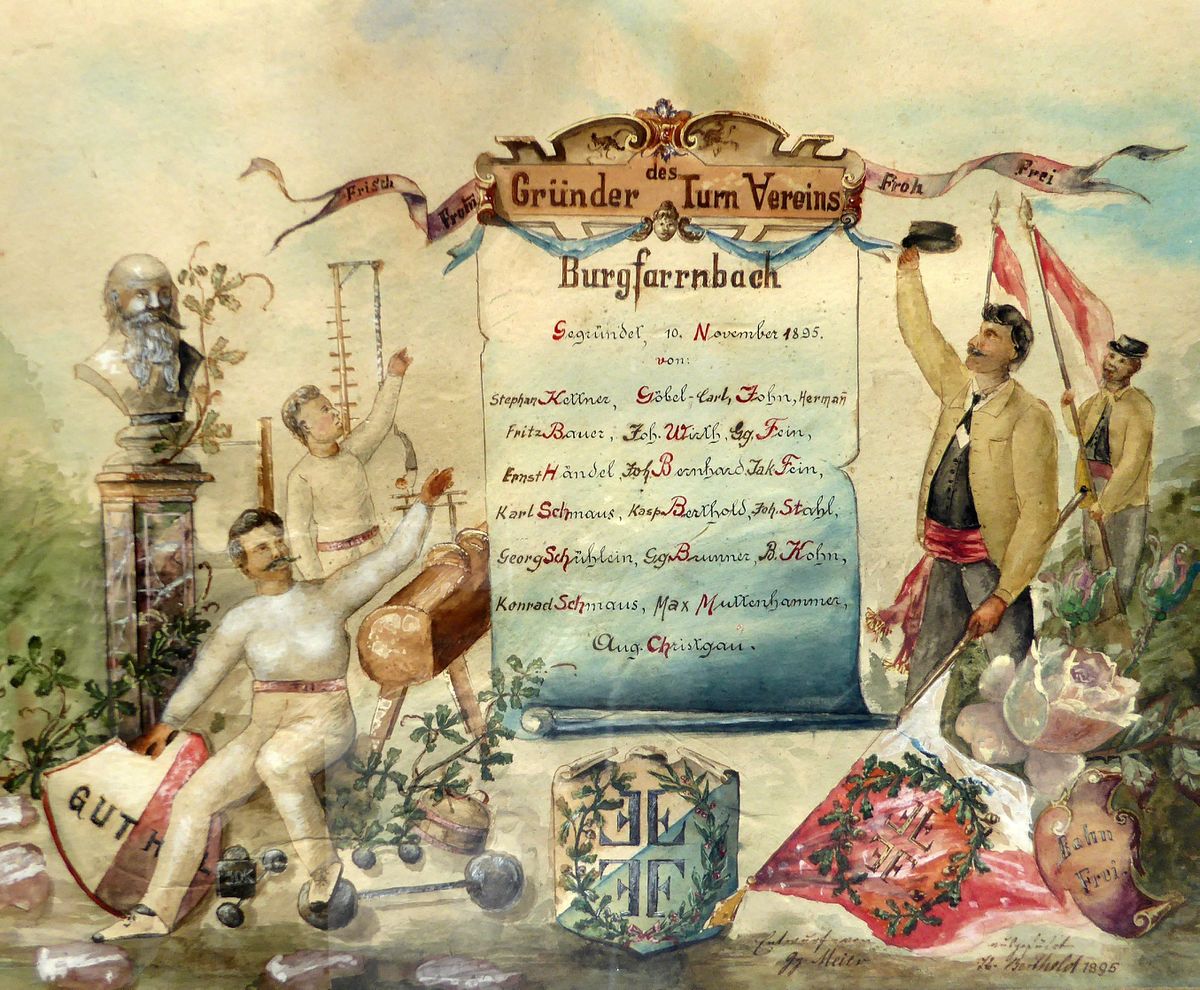 des
Gründer Turn Vereins
Frisch
Fromm
Froh
Frei
Burgfarrnbach
Gegründet, 10. November 1895.
von:
Stephan Kellner, Göbel-Carl, John, Hermañ
Fritz Bauer, Joh. Wirth, Gg. Fein,
Ernst Händel, Joh Bernhard, Jak Fein,
Karl Schmaus, Kasp. Berthold, Joh. Stahl,
Georg Schühlein, Gg Brunner, B. Kohn,
Konrad Schmaus, Max Muttenhammer,
Aug. Christgau.
GUT H L
FF
FF
FF
FF
Bahn
Frei.
Entwurf von
Gg. Meier
ausgeführt
Berthold 1895